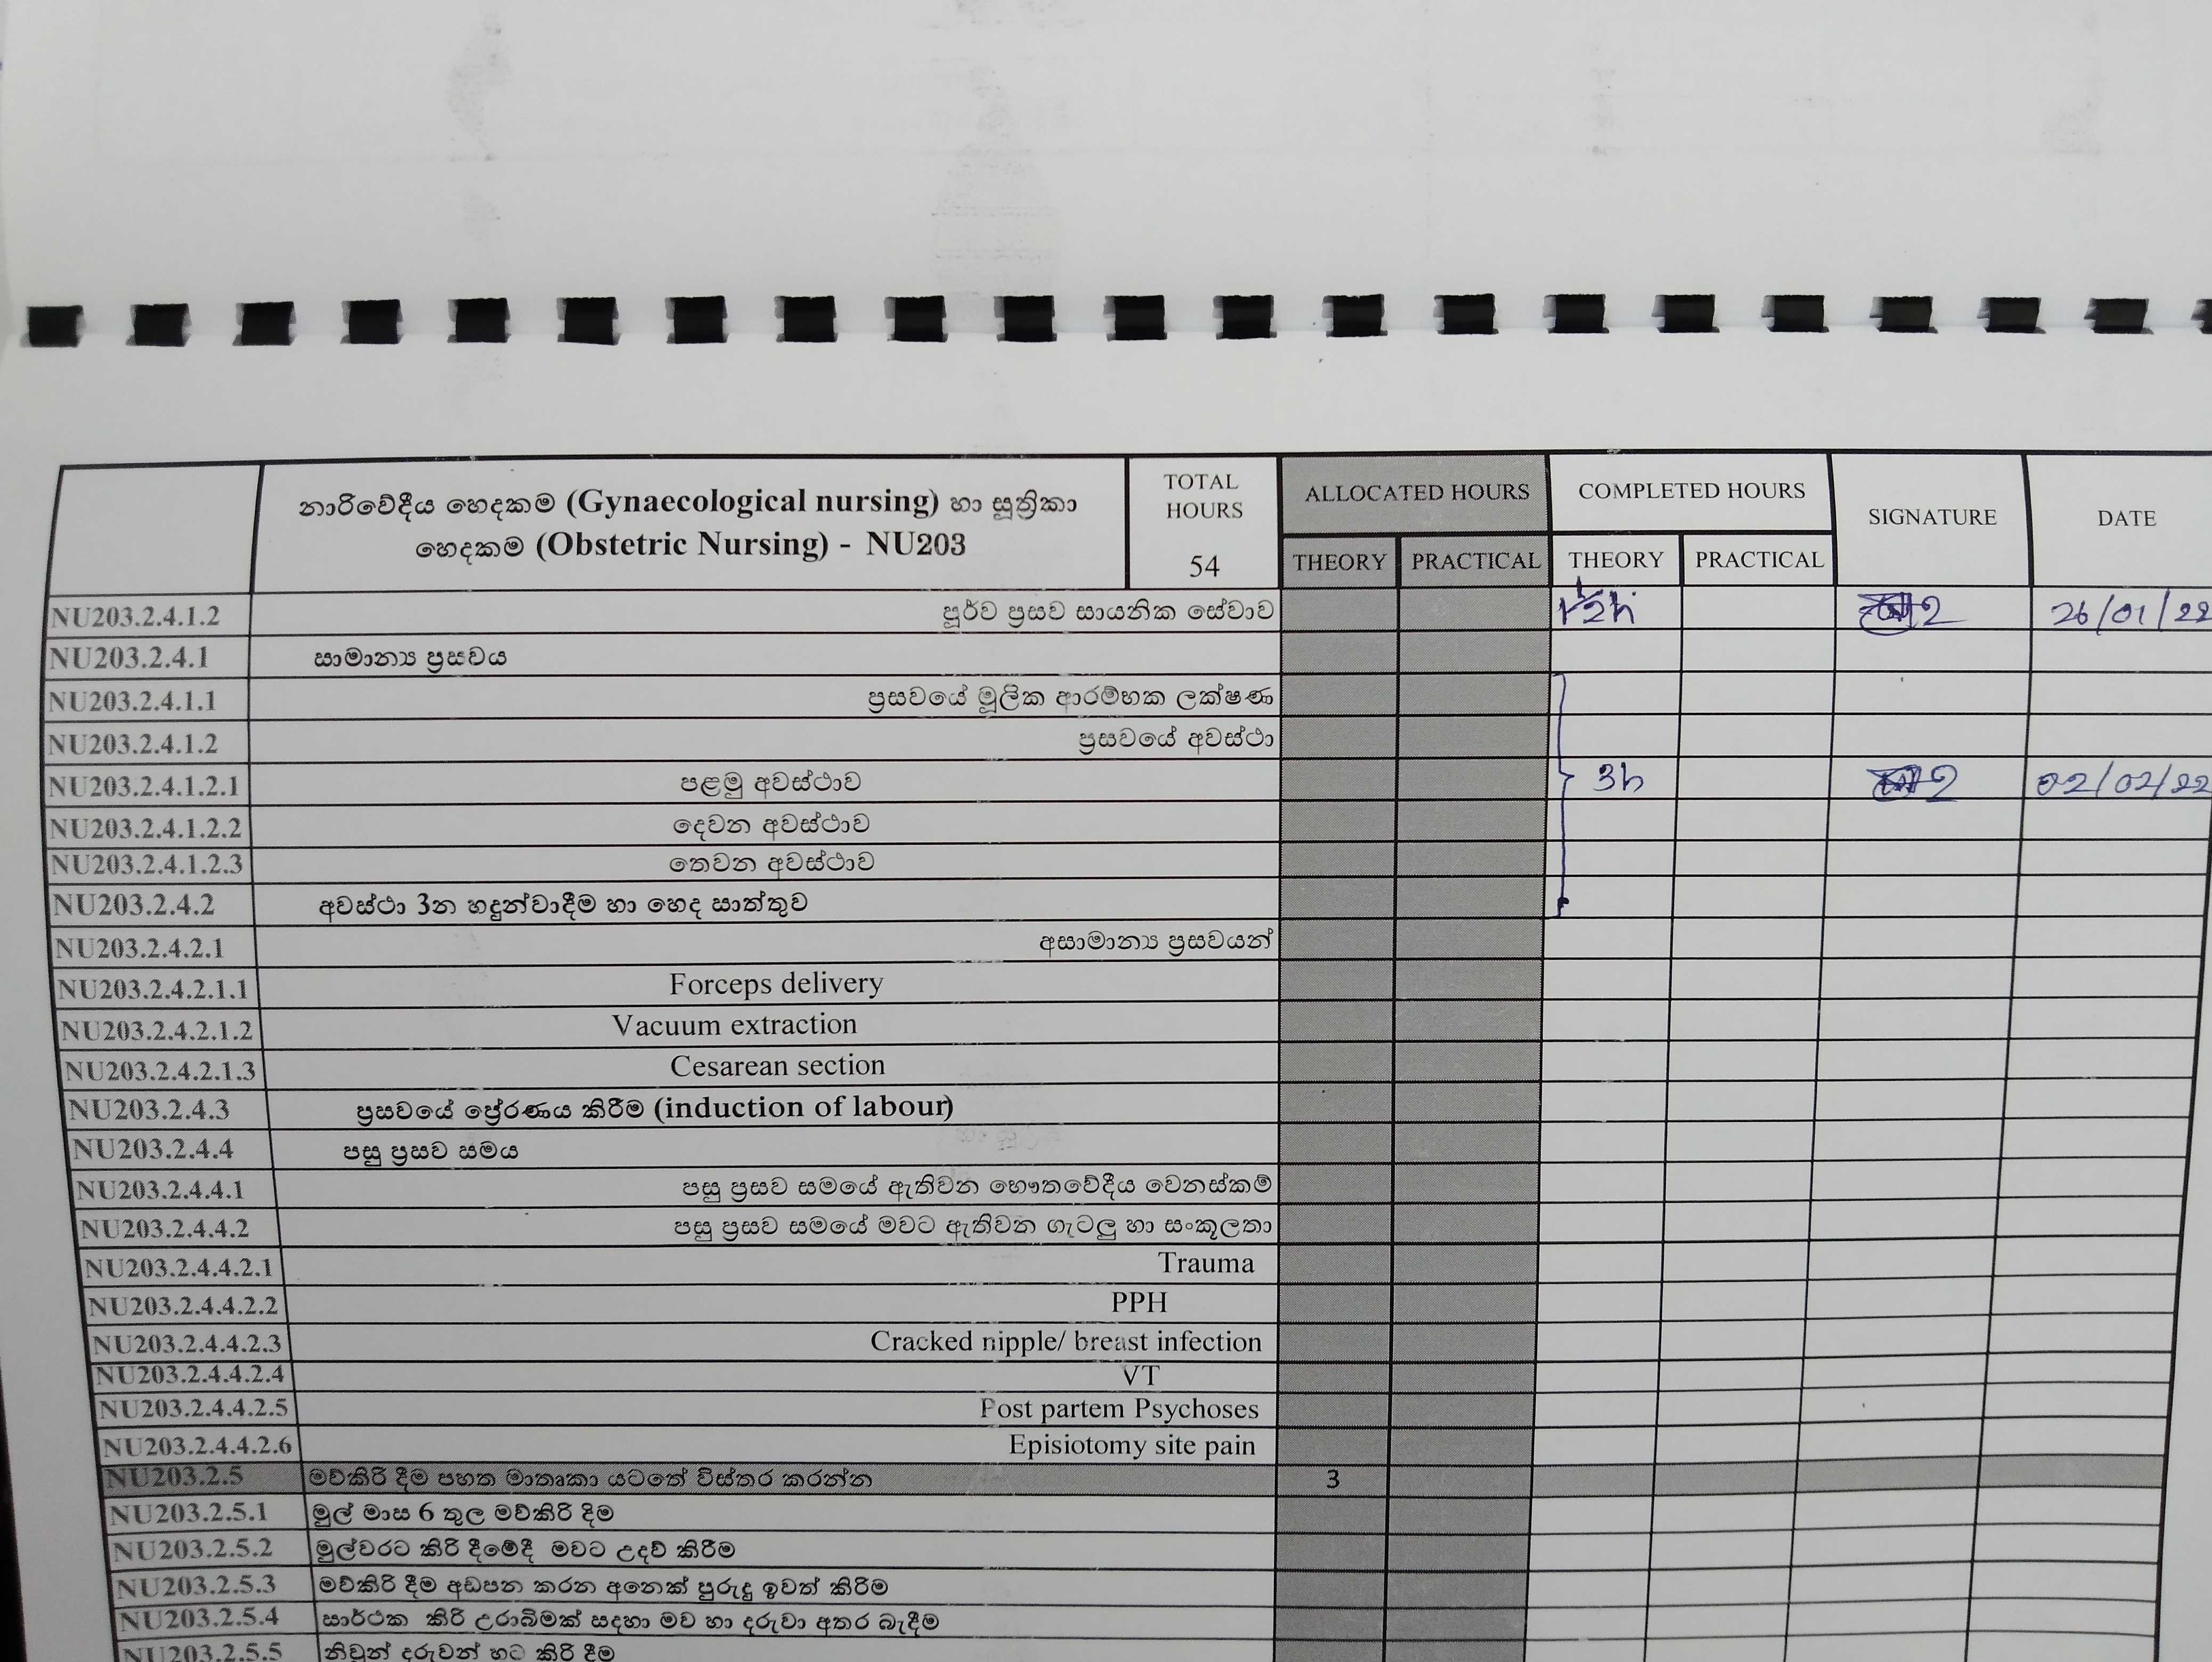 නාරිවේදීය හෙදකම (Gynaecological nursing) හා සූත්‍රිකා
හෙදකම (Obstetric Nursing) - NU203
TOTAL
HOURS
54
ALLOCATED HOURS
COMPLETED HOURS
SIGNATURE
DATE
THEORY PRACTICAL THEORY PRACTICAL
NU203.2.4.1.2 පූර්ව ප්‍රසව සායනික සේවාව 26/01/22
NU203.2.4.1 සාමාන්‍ය ප්‍රසවය
NU203.2.4.1.1 ප්‍රසවයේ මූලික ආරම්භක ලක්ෂණ
NU203.2.4.1.2 ප්‍රසවයේ අවස්ථා
NU203.2.4.1.2.1 පළමු අවස්ථාව 3h 02/02/22
NU203.2.4.1.2.2 දෙවන අවස්ථාව
NU203.2.4.1.2.3 තෙවන අවස්ථාව
NU203.2.4.2 අවස්ථා 3න හදුන්වාදීම හා හෙද සාත්තුව
NU203.2.4.2.1 අසාමාන්‍ය ප්‍රසවයන්
NU203.2.4.2.1.1 Forceps delivery
NU203.2.4.2.1.2 Vacuum extraction
NU203.2.4.2.1.3 Cesarean section
NU203.2.4.3 ප්‍රසවයේ ප්‍රේරණය කිරීම (induction of labour)
NU203.2.4.4 පසු ප්‍රසව සමය
NU203.2.4.4.1 පසු ප්‍රසව සමයේ ඇතිවන භෞතවේදීය වෙනස්කම්
NU203.2.4.4.2 පසු ප්‍රසව සමයේ මවට ඇතිවන ගැටලු හා සංකූලතා
NU203.2.4.4.2.1 Trauma
NU203.2.4.4.2.2 PPH
NU203.2.4.4.2.3 Cracked nipple/ breast infection
NU203.2.4.4.2.4 VT
NU203.2.4.4.2.5 Post partem Psychoses
NU203.2.4.4.2.6 Episiotomy site pain
NU203.2.5 මව්කිරි දීම පහත මාතෘකා යටතේ විස්තර කරන්න 3
NU203.2.5.1 මුල් මාස 6 තුල මව්කිරි දිම
NU203.2.5.2 මුල්වරට කිරි දීමේදී මවට උදව් කිරීම
NU203.2.5.3 මව්කිරි දීම අඩපන කරන අනෙක් පුරුදු ඉවත් කිරිම
NU203.2.5.4 සාර්ථක කිරි උරාබිමක් සදහා මව හා දරුවා අතර බැදීම
NU203.2.5.5 නිවුන් දරුවන් හට කිරි දීම